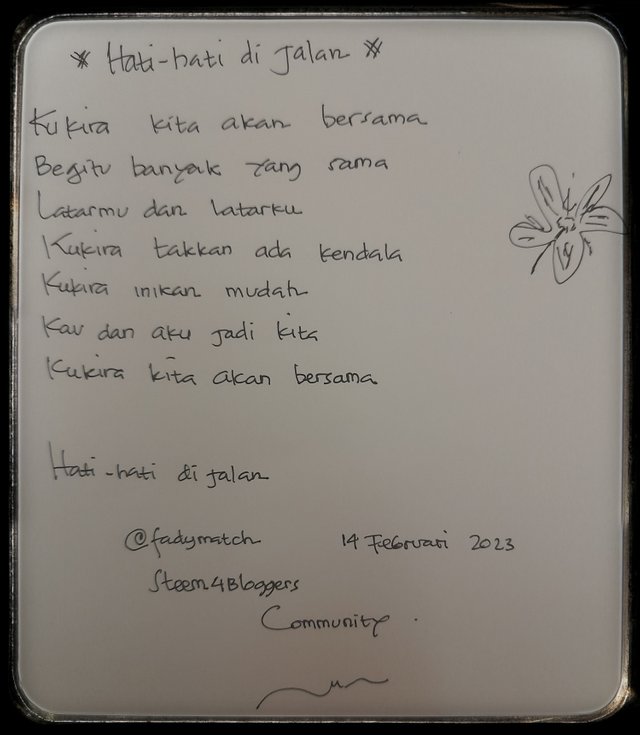 * Hati-hati di jalan *
Kukira kita akan bersama
Begitu banyak yang sama
Latarmu dan latarku
Kukira takkan ada kendala
Kukira inikan mudah
Kau dan aku jadi kita
Kukira kita akan bersama
Hati-hati di jalan
@fadymatch 14 Februari 2023
Steem4Bloggers
Community.